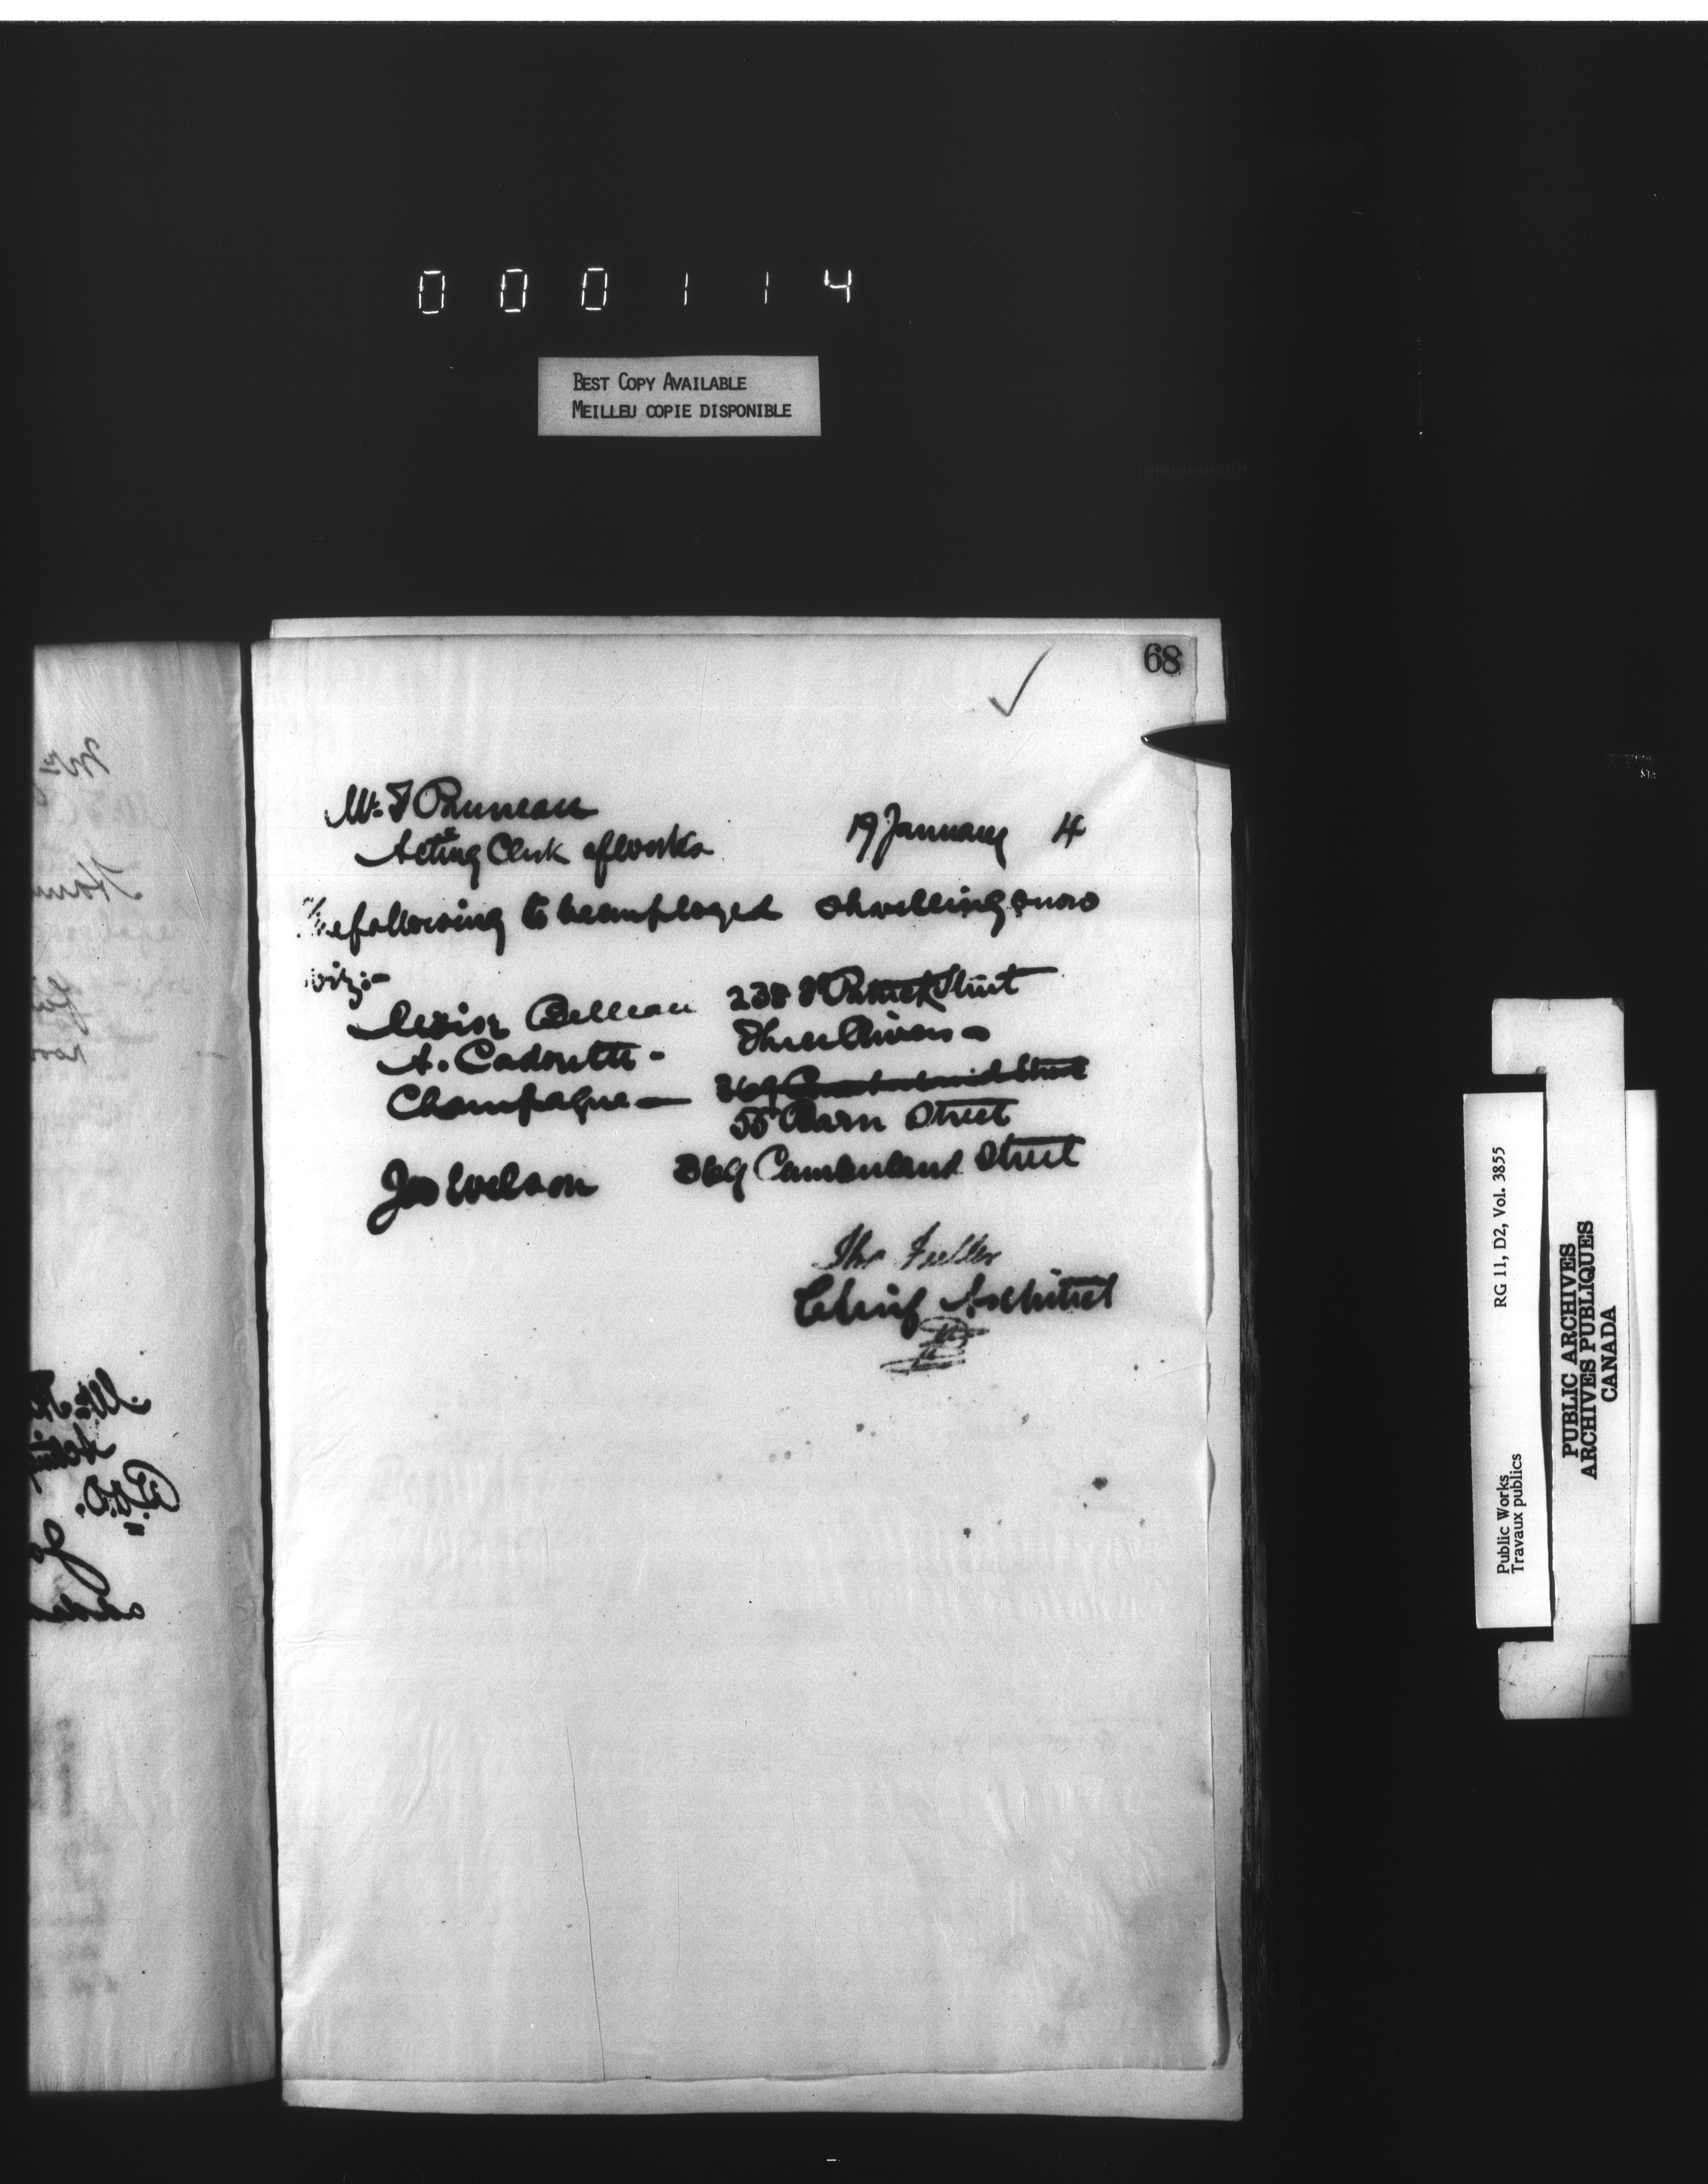 000114
BEST COPY AVAILABLE
MEILLEU COPIE DISPONIBLE
68
Mr. F Pruneau
Acting Clerk of Works
19 January 4
The following to be employed shovelling snow
viz:-
Belleau 238 St Patrick Street
A. Cadorette - Three Rivers -
Champagne - 369 Cumberland Street
55 Street
Jos Wilson 369 Cumberland Street
Thos Fuller
Chief Architect
Public Works
Travaux publics
RG 11, D2, Vol. 3855
PUBLIC ARCHIVES
ARCHIVES PUBLIQUES
CANADA